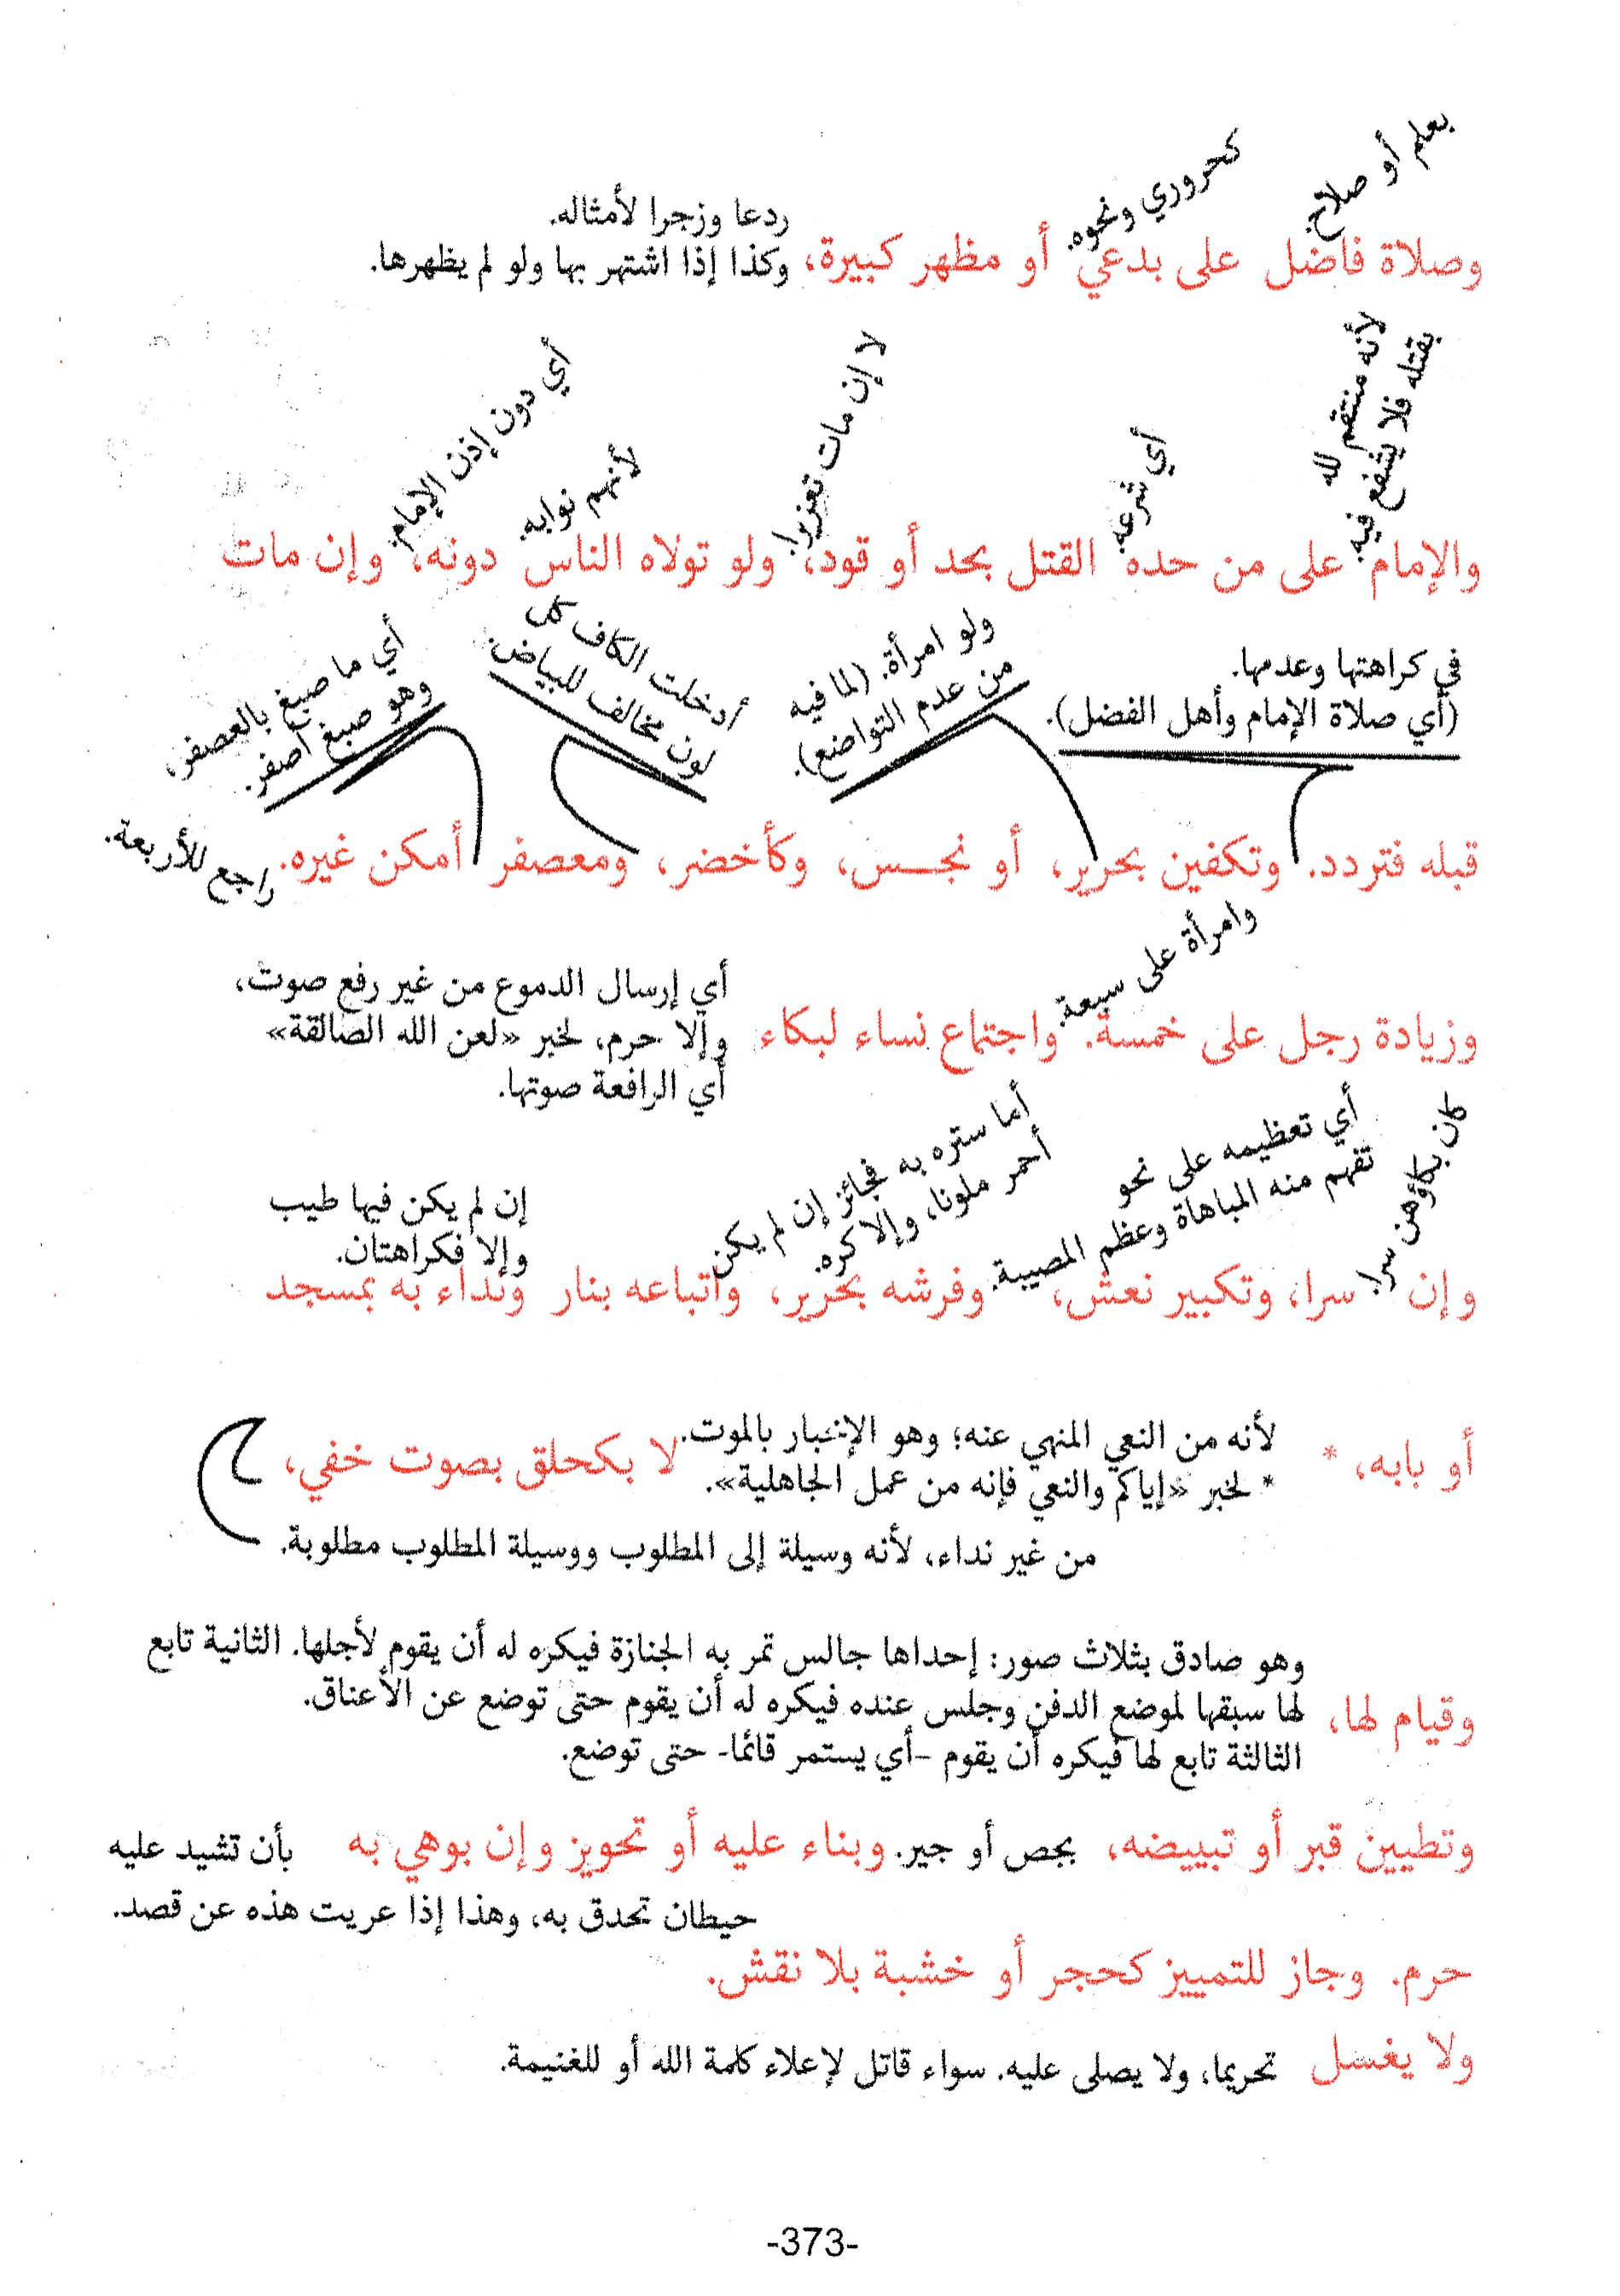 بعلم أو صلاح.
كحروري ونحوه.
ردعا وزجرا لأمثاله.
وصلاة فاضل على بدعي أو مظهر كبيرة، وكذا إذا اشتهر بها ولو لم يظهرها.
لأنه منتقم لله
بقتله فلا يشفع فيه
أي شرعه.
لا إن مات تعزيرا.
لأنهم نوابه.
أي دون إذن الإمام.
والإمام على من حده القتل بحد أو قود، ولو تولاه الناس دونه، وإن مات
في كراهتها وعدمها.
(أي صلاة الإمام وأهل الفضل).
ولو امرأة. (لما فيه
من عدم التواضع).
أدخلت الكاف كل
لون مخالف للبياض.
أي ما صبغ بالعصفر،
وهو صبغ أصفر.
قبله فتردد. وتكفين بحرير، أو نجس، وكأخضر، ومعصفر أمكن غيره. راجع للأربعة.
وامرأة على سبعة.
أي إرسال الدموع من غير رفع صوت،
وزيادة رجل على خمسة. واجتماع نساء لبكاء وإلا حرم، لخبر «لعن الله الصالقة»
أي الرافعة صوتها.
كان بكاؤهن سرا.
أي تعظيمه على نحو
تفهم منه المباهاة وعظم المصيبة.
أما ستره به فجائز إن لم يكن
أحمر ملونا، وإلا كره.
إن لم يكن فيها طيب
وإلا فكراهتان.
وإن سرا، وتكبير نعش، وفرشه بحرير، واتباعه بنار ونداء به بمسجد
لأنه من النعي المنهي عنه؛ وهو الإخبار بالموت.
أو بابه، * لا بكحلق بصوت خفي،
* لخبر «إياكم والنعي فإنه من عمل الجاهلية».
من غير نداء، لأنه وسيلة إلى المطلوب ووسيلة المطلوب مطلوبة.
وهو صادق بثلاث صور: إحداها جالس تمر به الجنازة فيكره له أن يقوم لأجلها. الثانية تابع
وقيام لها، لها سبقها لموضع الدفن وجلس عنده فيكره له أن يقوم حتى توضع عن الأعناق.
الثالثة تابع لها فيكره أن يقوم -أي يستمر قائما- حتى توضع.
وتطيين قبر أو تبييضه، بجص أو جير. وبناء عليه أو تحويز وإن بوهي به بأن تشيد عليه
حيطان تحدق به، وهذا إذا عريت هذه عن قصد.
حرم. وجاز للتمييز كحجر أو خشبة بلا نقش.
ولا يغسل تحريما، ولا يصلى عليه. سواء قاتل لإعلاء كلمة الله أو للغنيمة.
-373-